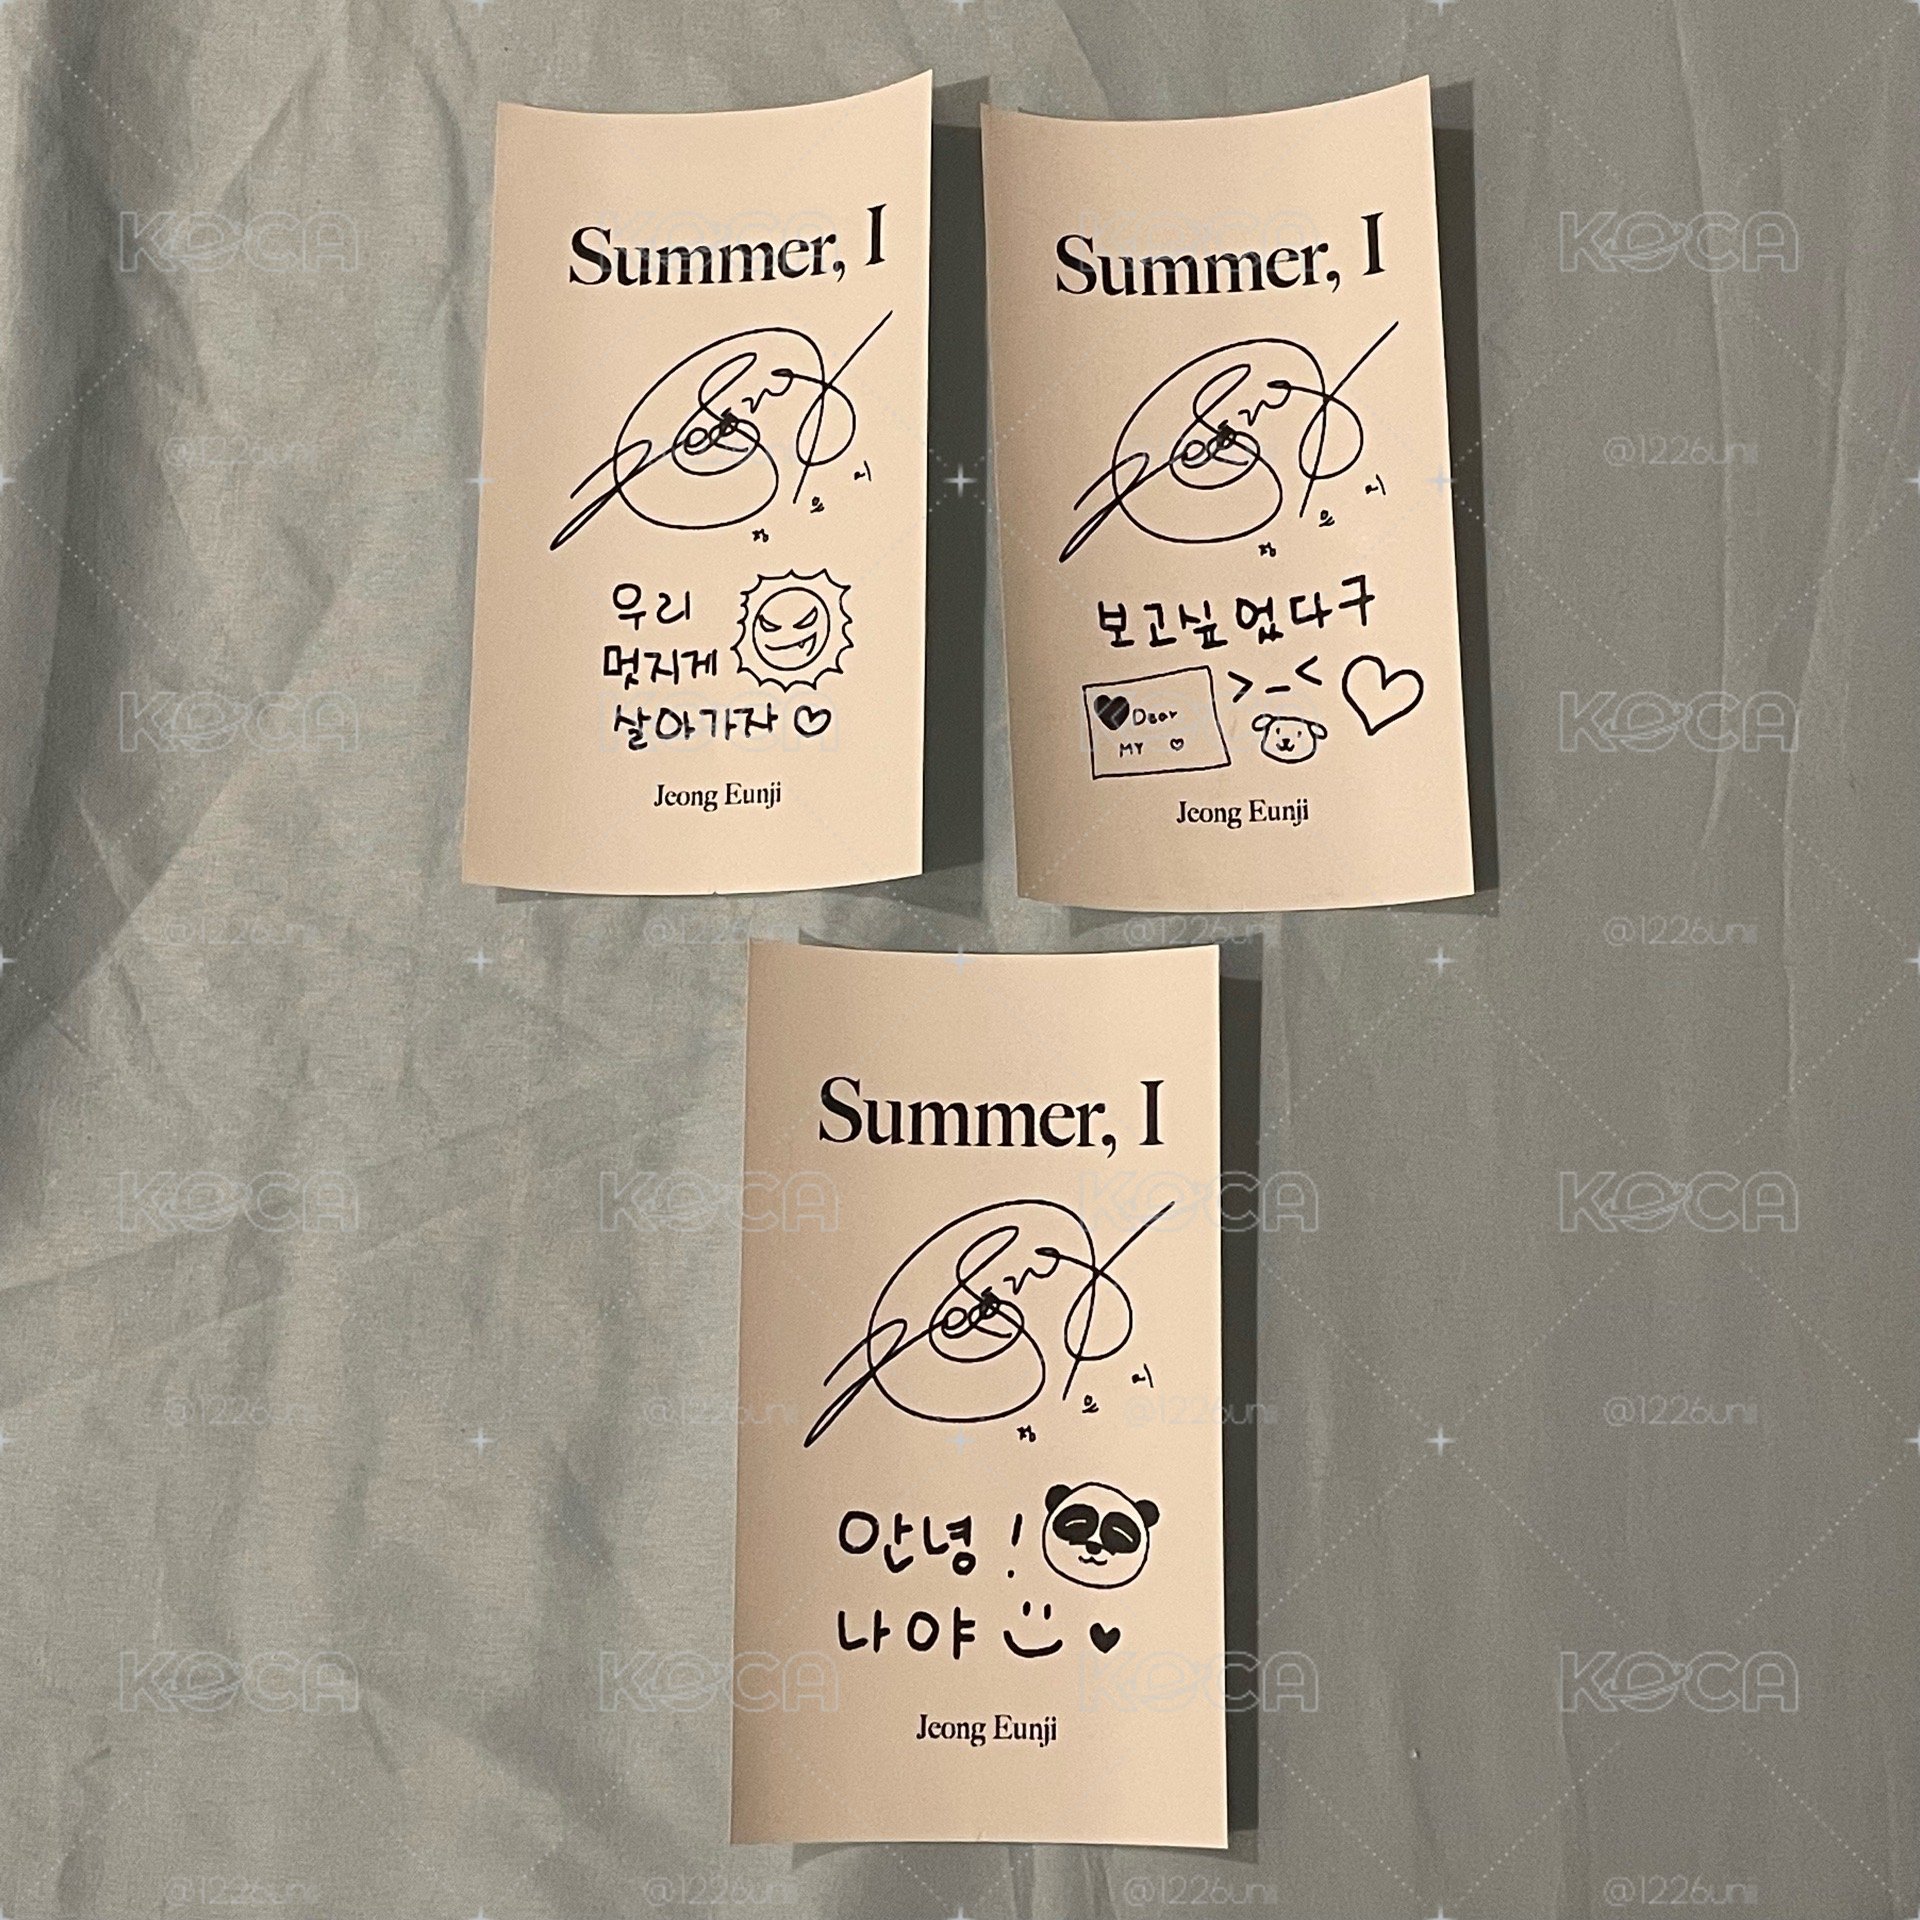 Summer, I
정
은
지
우리
멋지게
살아가자 ♡
Jeong Eunji
Summer, I
정
은
지
보고싶었다구
>_<
♥ Dear
MY ♡
Jeong Eunji
Summer, I
정
은
지
안녕!
나야
Jeong Eunji
KOCA
@1226unii